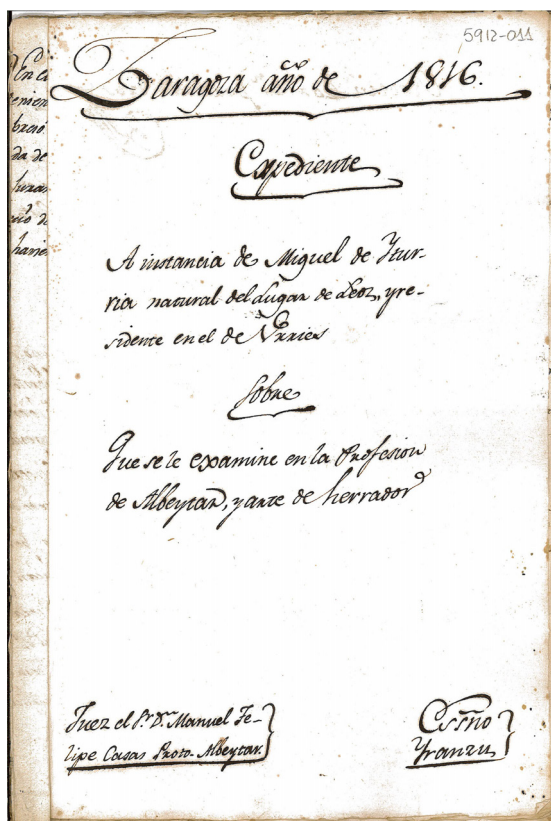 5912-011
Zaragoza año de 1816.
Expediente
A instancia de Miguel de Ytur-
ria natural del Lugar de Leoz, y re-
sidente en el de Vrries
Sobre
Que se le examine en la Profesion
de Albeytar, y arte de herrador
Juez el Sr. Dn. Manuel Fe-
lipe Casas Proto-Albeytar.
Essño
Yranzu